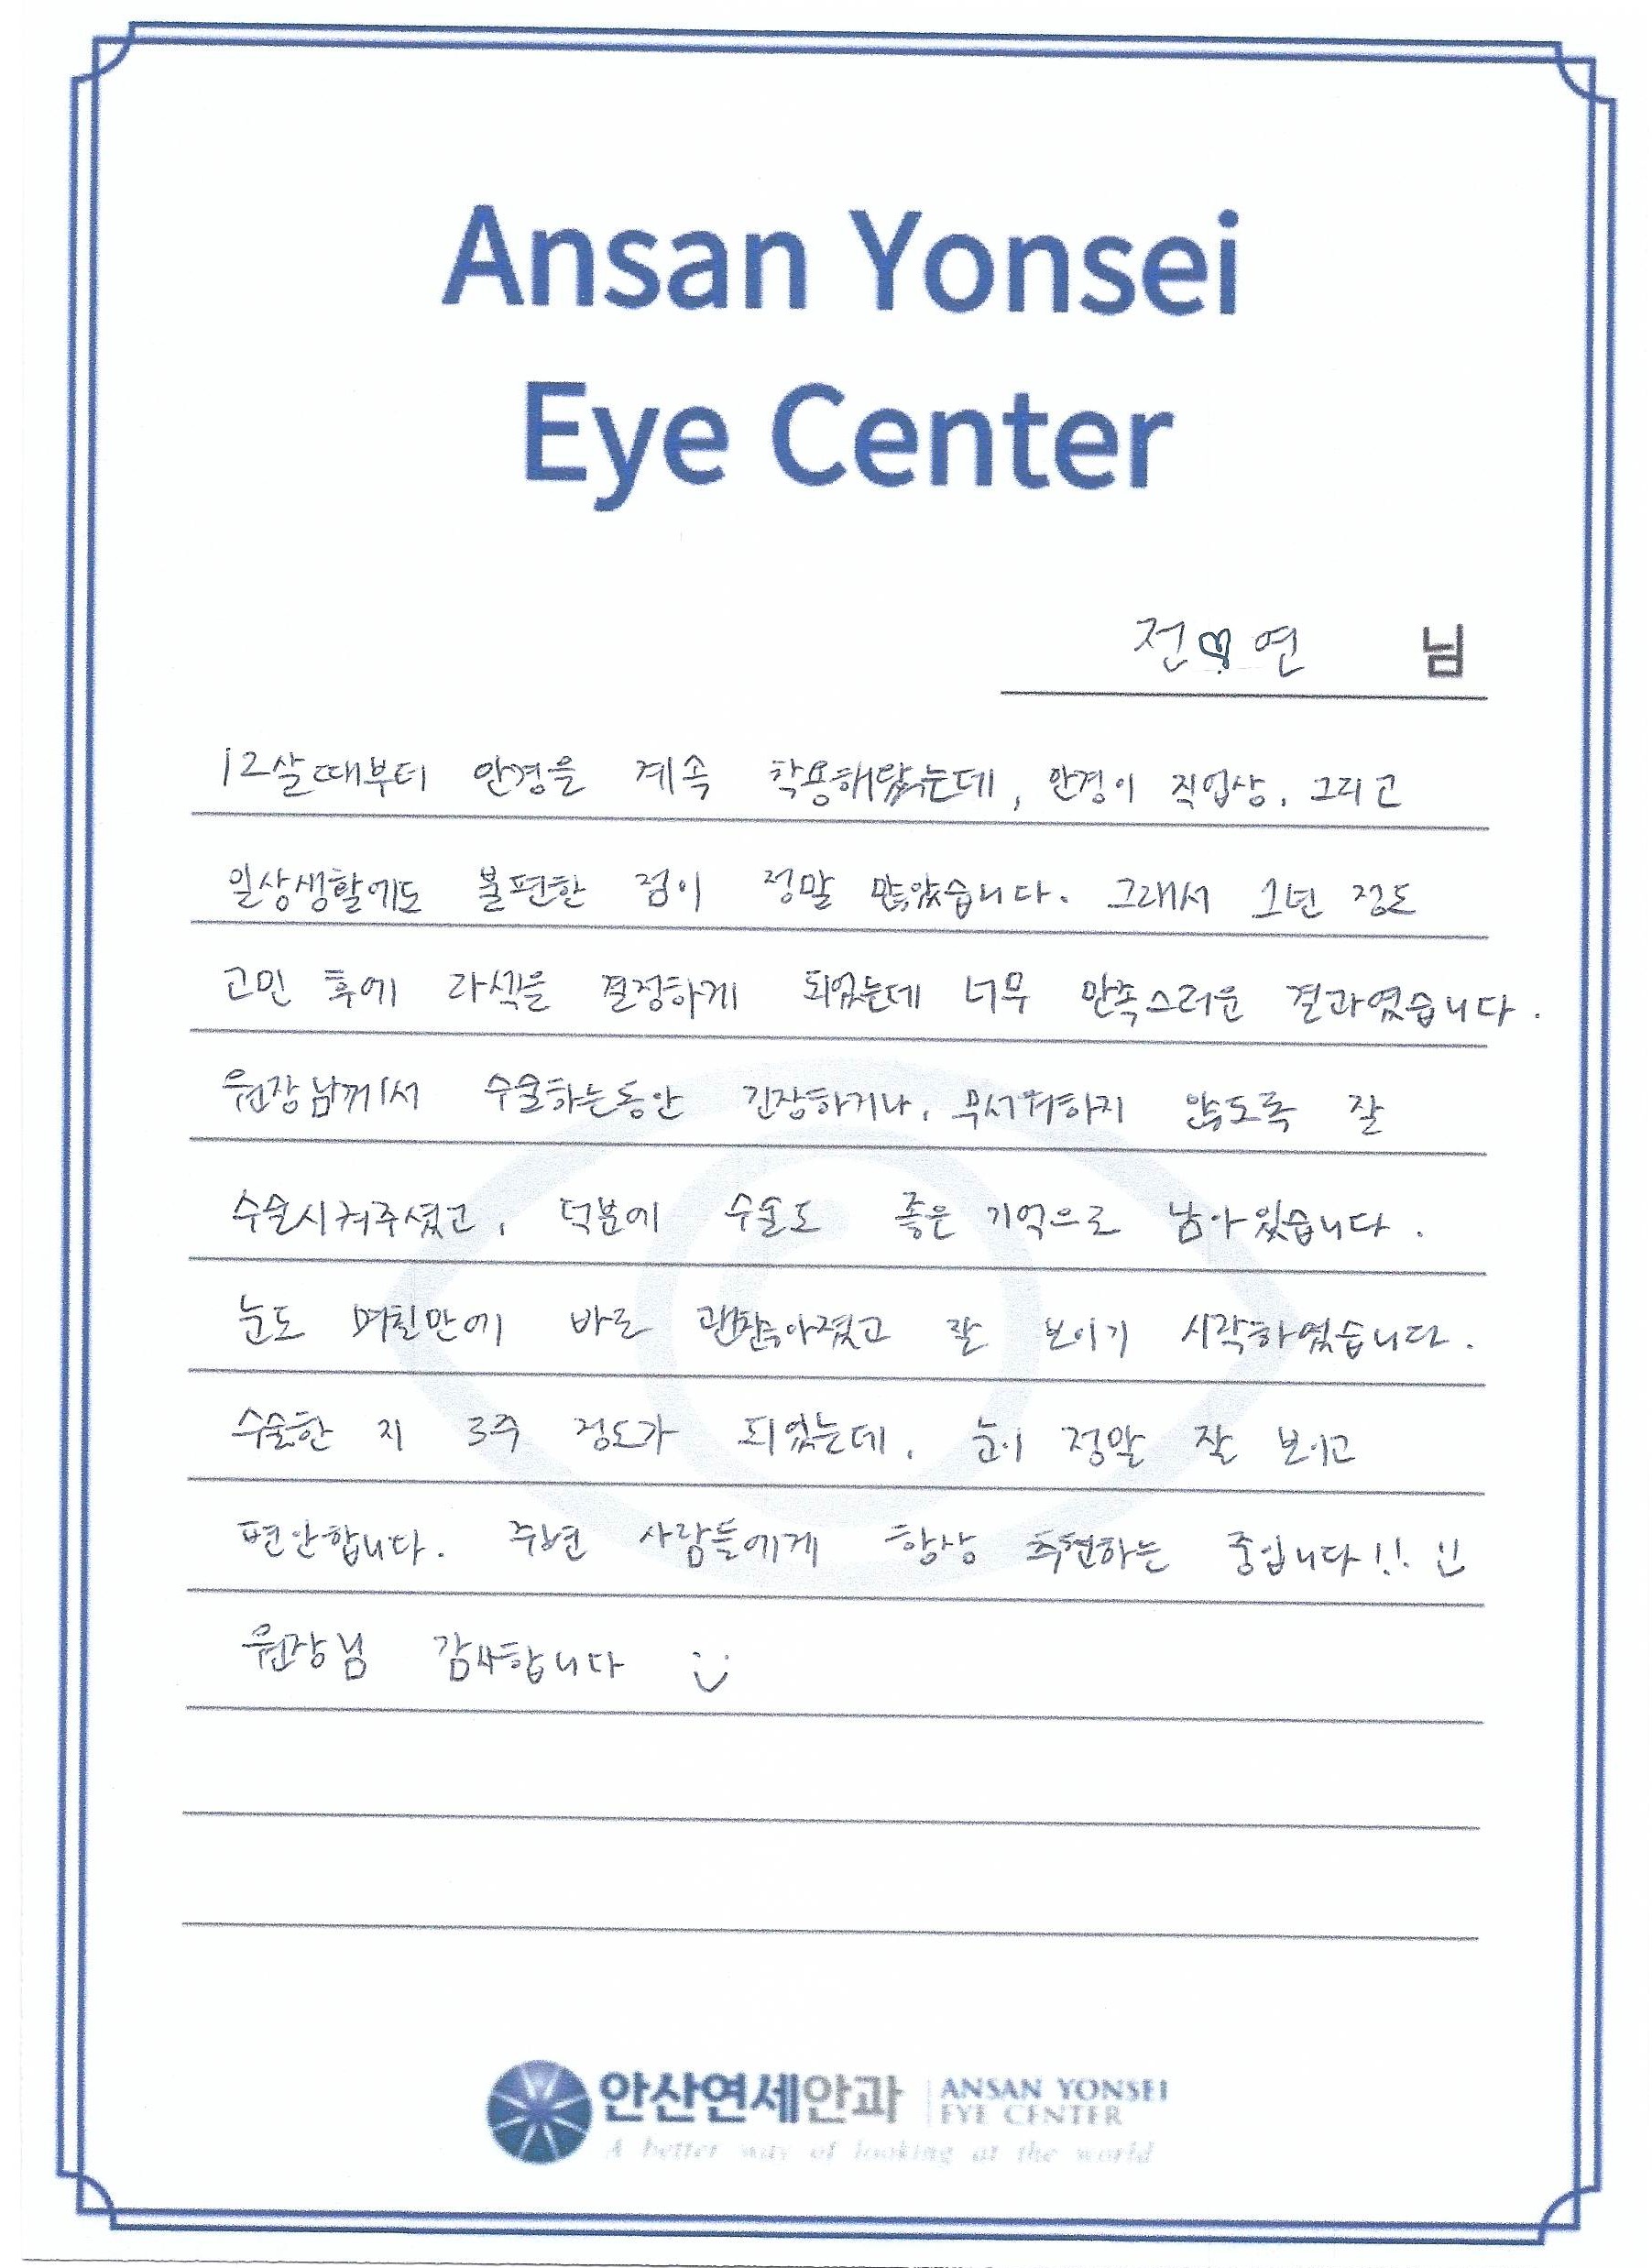 Ansan Yonsei
Eye Center
전♡연 님
12살때부터 안경을 계속 착용해왔는데, 안경이 직업상, 그리고
일상생활에도 불편한 점이 정말 많았습니다. 그래서 1년 정도
고민 후에 라섹을 결정하게 되었는데 너무 만족스러운 결과였습니다.
원장님께서 수술하는동안 긴장하거나, 무서워하지 않도록 잘
수술시켜주셨고, 덕분에 수술도 좋은 기억으로 남아있습니다.
눈도 며칠만에 바로 괜찮아졌고 잘 보이기 시작하였습니다.
수술한 지 3주 정도가 되었는데, 눈이 정말 잘 보이고
편안합니다. 주변 사람들에게 항상 추천하는 중입니다!! :)
원장님 감사합니다 :)
안산연세안과 ANSAN YONSEI
EYE CENTER
A better way of looking at the world